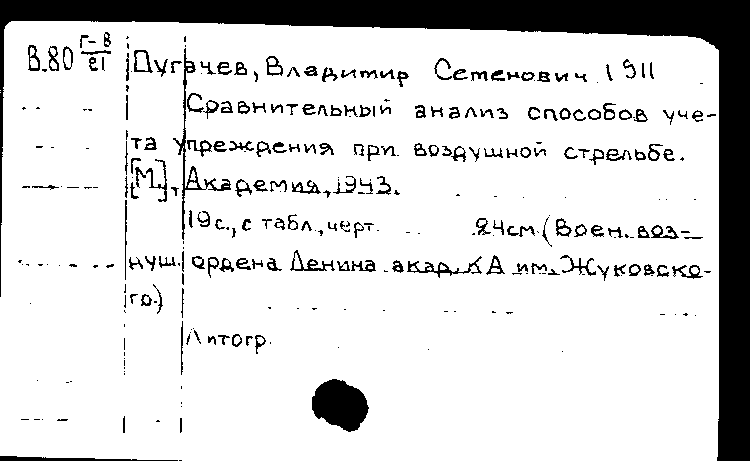 В.80 Г-В/21 Пугачев, Владимир Семенович 1911
Сравнительный анализ способов уче-
та упреждения при воздушной стрельбе.
[М.], Академия, 1943.
19с., с табл., черт. 24см. (Воен. воз-
душ. ордена Ленина акад. КА им. Жуковско-
го.)
Литогр.